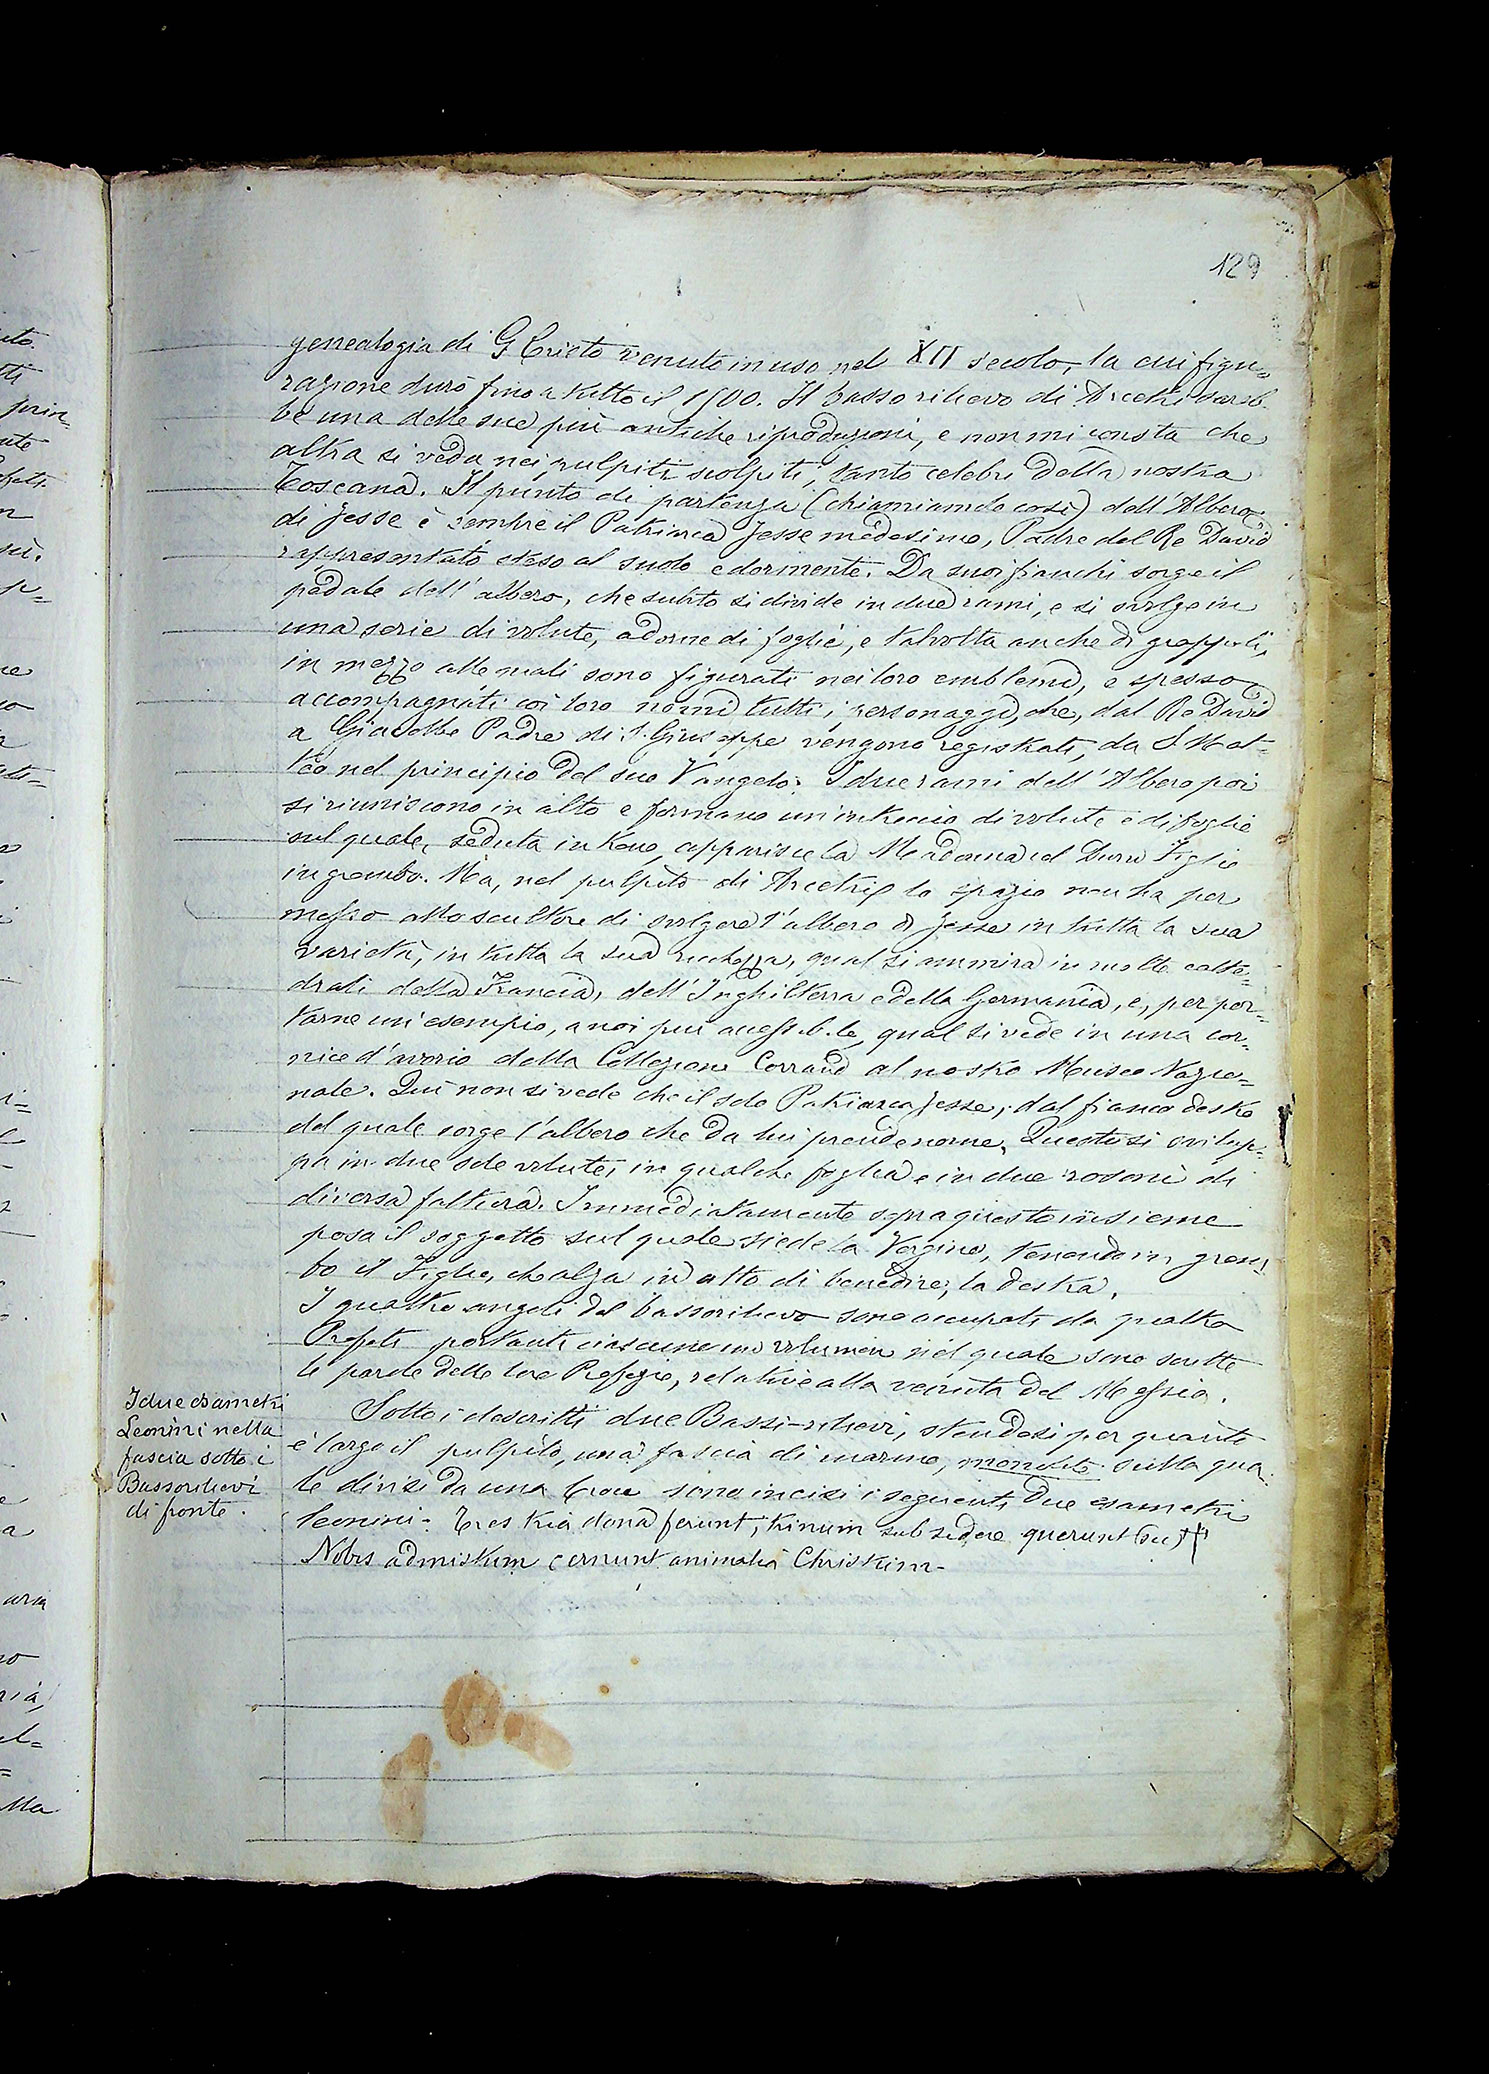 129
genealogia di G Cristo venuto in uso nel XII secolo, la cui figu=
razione durò fino a tutto il 1500. Il basso rilievo di Arcetri sareb.
be una delle sue più antiche riproduzioni, e non mi consta che
altra si veda nei pulpiti scolpiti, tanto celebri della nostra
Toscana. Il punto di partenza (chiamiamolo così) dell'Albero
di Jesse è sempre il Patriarca Jesse medesimo, Padre del Re David
rappresentato steso al suolo e dormente. Da suoi fianchi sorge il
pedale dell'albero, che subito si divide in due rami, e si svolge in
una serie di volute, adorne di foglie, e talvolta anche di grappoli,
in mezzo alle quali sono figurati nei loro emblemi, e spesso
accompagnati coi loro nomi tutti i personaggi, che, dal Re David
a Giacobbe Padre di S. Giuseppe vengono registrati, da S. Mat-
teo nel principio del suo Vangelo. I due rami dell'Albero poi
si riuniscono in alto e formano un intreccio di volute e di foglie
sul quale, seduta in trono, apparisce la Madonna col Divin Figlio
in grembo. Ma, nel pulpito di Arcetri, lo spazio non ha per
messo allo scultore di svolgere l'albero di Jesse in tutta la sua
varietà, in tutta la sua ricchezza, qual si ammira in molte catte=
drali della Francia, dell'Inghilterra e della Germania, e, per por=
tarne un'esempio, a noi più accessibile, qual si vede in una cor=
nice d'avorio della Collezione Carrand al nostro Museo Nazio=
nale. Qui non si vede che il solo Patriarca Jesse, dal fianco destro
del quale sorge l'albero che da lui prende nome. Questo si svilup=
pa in due sole volute, in qualche foglia e in due rosoni di
diversa fattura. Immediatamente sopra questo insieme
posa il soggetto sul quale siede la Vergine, tenendo in grem
bo il Figlio, che alza in atto di benedire, la destra.
I quattro angoli del bassorilievo sono occupati da quattro
Profeti portanti ciascuno un volumen nel quale sono scritte
le parole delle loro Profezie, relative alla venuta del Messia.
I due esametri
Leonini nella
fascia sotto i
Bassorilievi
di fronte.
Sotto i descritti due Bassi-rilievi, stendesi per quanto
è largo il pulpito, una fascia di marmo, sulla qua
le divisi da una Croce sono incisi i seguenti due esametri
leonini: Tres tria dona ferunt, trinum sub sidere querunt (sic) †
Nobis admistum cernunt animalia Christum-